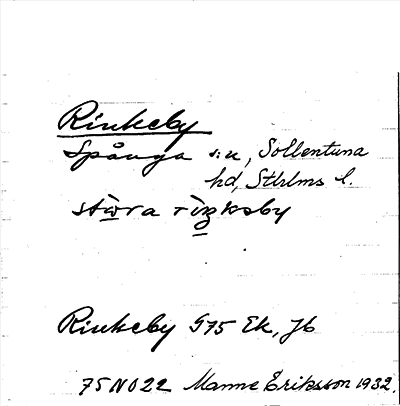 Rinkeby
Spånga s:n, Sollentuna
hd, Sthlms l.
Rinkeby G75 Ek, Jb
75 NO 22 Manne Eriksson 1932.